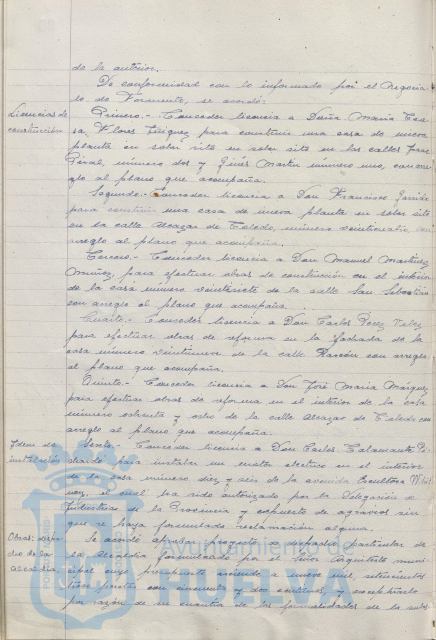 do la anterior.
De conformidad con lo informado por el Negocia
do de Fomento, se acordó:
Licencias de
construcción
Primero.- Conceder licencia a Doña María Tere
sa Flores Íñiguez para construir una casa de nueva
planta en solar sito en las calles
Peral, número dos y Ginés Martín número uno, con arre
glo al plano que acompaña.
Segundo.- Conceder licencia a Don Francisco Garrido
para construir una casa de nueva planta en solar sito
en la calle Alcázar de Toledo, número veinticuatro con
arreglo al plano que acompaña.
Tercero.- Conceder licencia a Don Manuel Martínez
Muñoz para efectuar obras de construcción en el interior
de la casa número veintisiete de la calle San Sebastián
con arreglo al plano que acompaña.
Cuarto.- Conceder licencia a Don Carlos Pérez
para efectuar obras de reforma en la fachada de la
casa número veintinueve de la calle Rascón con arreglo
al plano que acompaña.
Quinto.- Conceder licencia a Don José María Márquez
para efectuar obras de reforma en el interior de la casa
número ochenta y ocho de la calle Alcázar de Toledo con
arreglo al plano que acompaña.
Idem de
instalación
Sexto.- Conceder licencia a Don Carlos
para instalar un motor eléctrico en el interior
de la casa número diez y seis de la avenida Escultora
ney, el cual ha sido autorizado por la Delegación de
Industrias de la Provincia y expuesto de agravios sin
que se haya formulado reclamación alguna.
Obras: despa
cho de la
Alcaldía.
Se acordó aprobar proyecto de despacho particular de
la Alcaldía formulado por el Señor Arquitecto muni
cipal cuyo presupuesto asciende a nueve mil, setecientas
pesetas con cincuenta y dos céntimos, y exceptuarlo
por razón de su cuantía de las formalidades de la subs
Ayuntamiento de
HUELVA